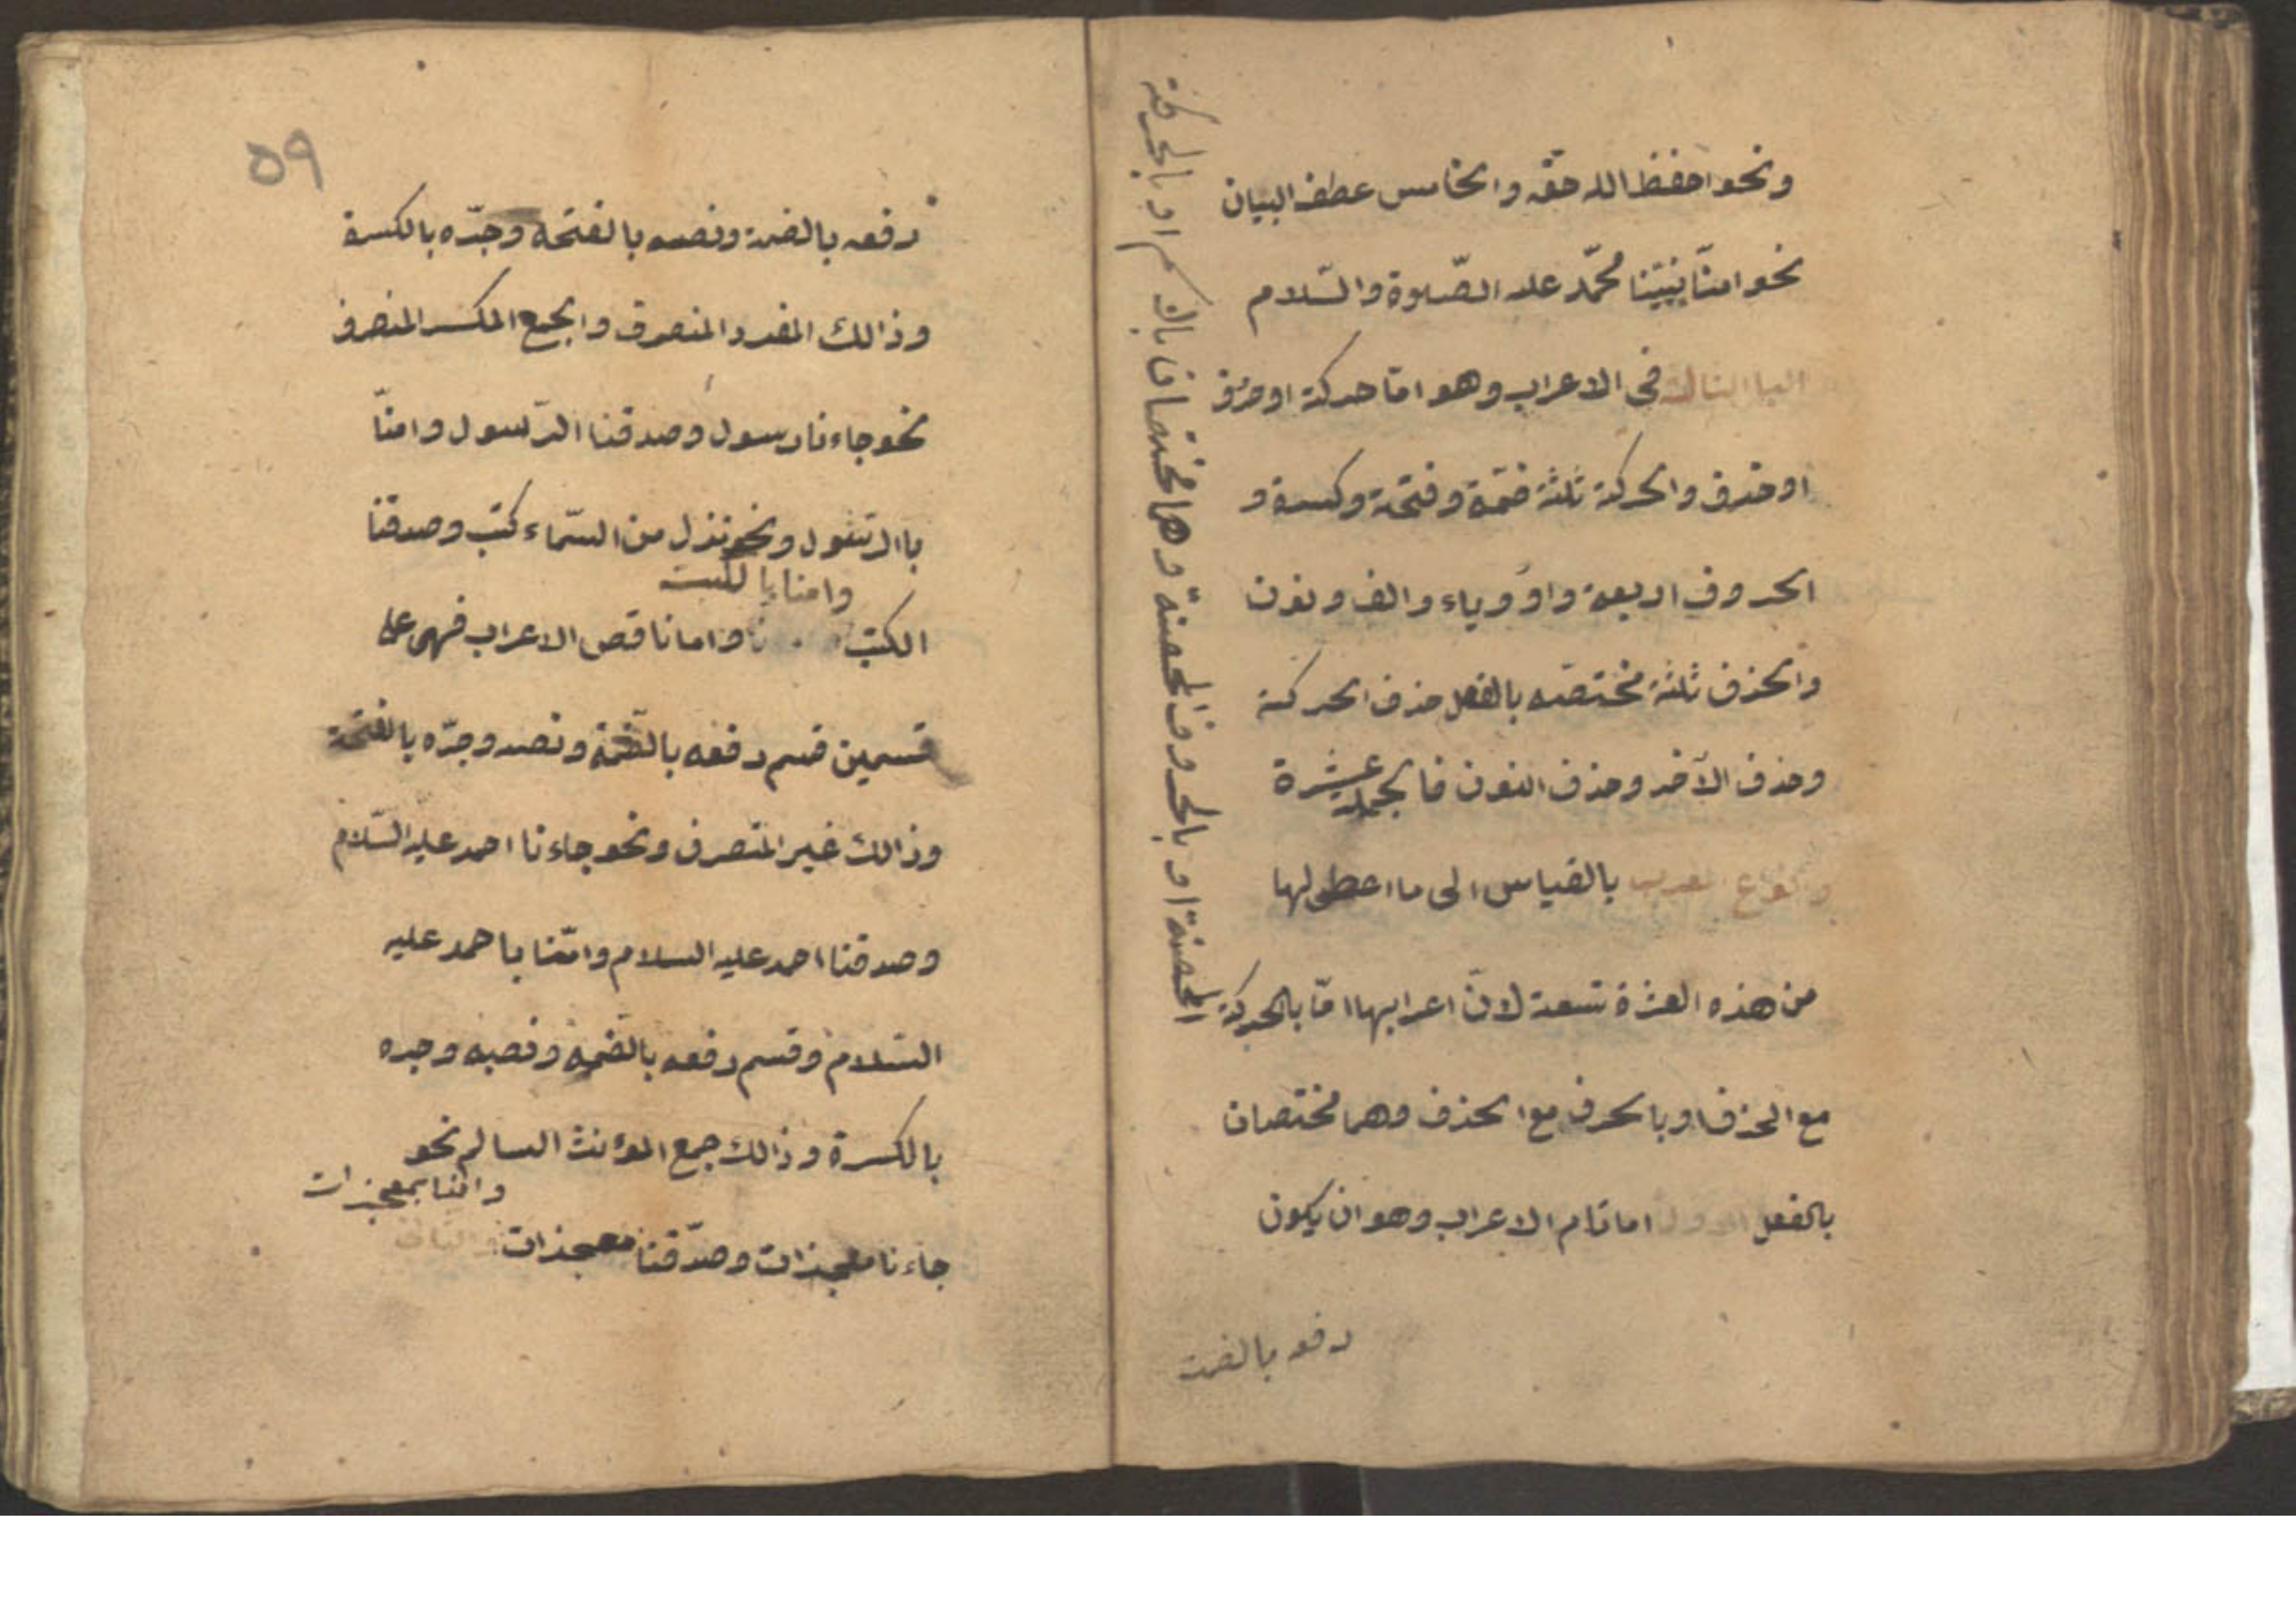 ونحو احفظ الله حقه والخامس عطف البيان
نحو امنّا بنبيّنا محمّد عليه الصّلوة والسّلام
الباب الثالث فى الاعراب وهو امّا حركة او حرف
او حذف والحركة ثلثة ضمّة وفتحة وكسرة و
الحروف اربعة واو وياء والف ونون
والحذف ثلثة مختصّة بالفعل حذف الحركة
وحذف الآخر وحذف النون فالجملة عشرة
وانواع المعرب بالقياس الى ما اعطى لها
من هذه العشرة تسعة لانّ اعرابها امّا بالحركة
المحضة او بالحروف المحضة وهما مختصان بالاسم او بالحركة
مع الحذف او بالحرف مع الحذف وهما مختصان
بالفعل الاول اما تام الاعراب وهو ان يكون
رفعه بالضمة
٥٩
رفعه بالضمة ونصبه بالفتحة وجرّه بالكسرة
وذالك المفرد المنصرف والجمع المكسر المنصرف
نحو جاءنا رسول وصدقنا الرّسول وامنّا
باالرسول ونحو نزل من السّماء كتب وصدقنا
وامنا بالكتب
الكتب واما ناقص الاعراب فهى على
قسمين قسم رفعه بالضّمة ونصبه وجرّه بالفتحة
وذالك غير المنصرف ونحو جاءنا احمد عليه السّلام
وصدقنا احمد عليه السلام وامّنا باحمد عليه
السّلام وقسم رفعه بالضمه ونصبه وجره
بالكسرة وذالك جمع الموءنث السالم نحو
وامنا بمعجزات
جاءنا معجزات وصدّقنا معجزات والثانى